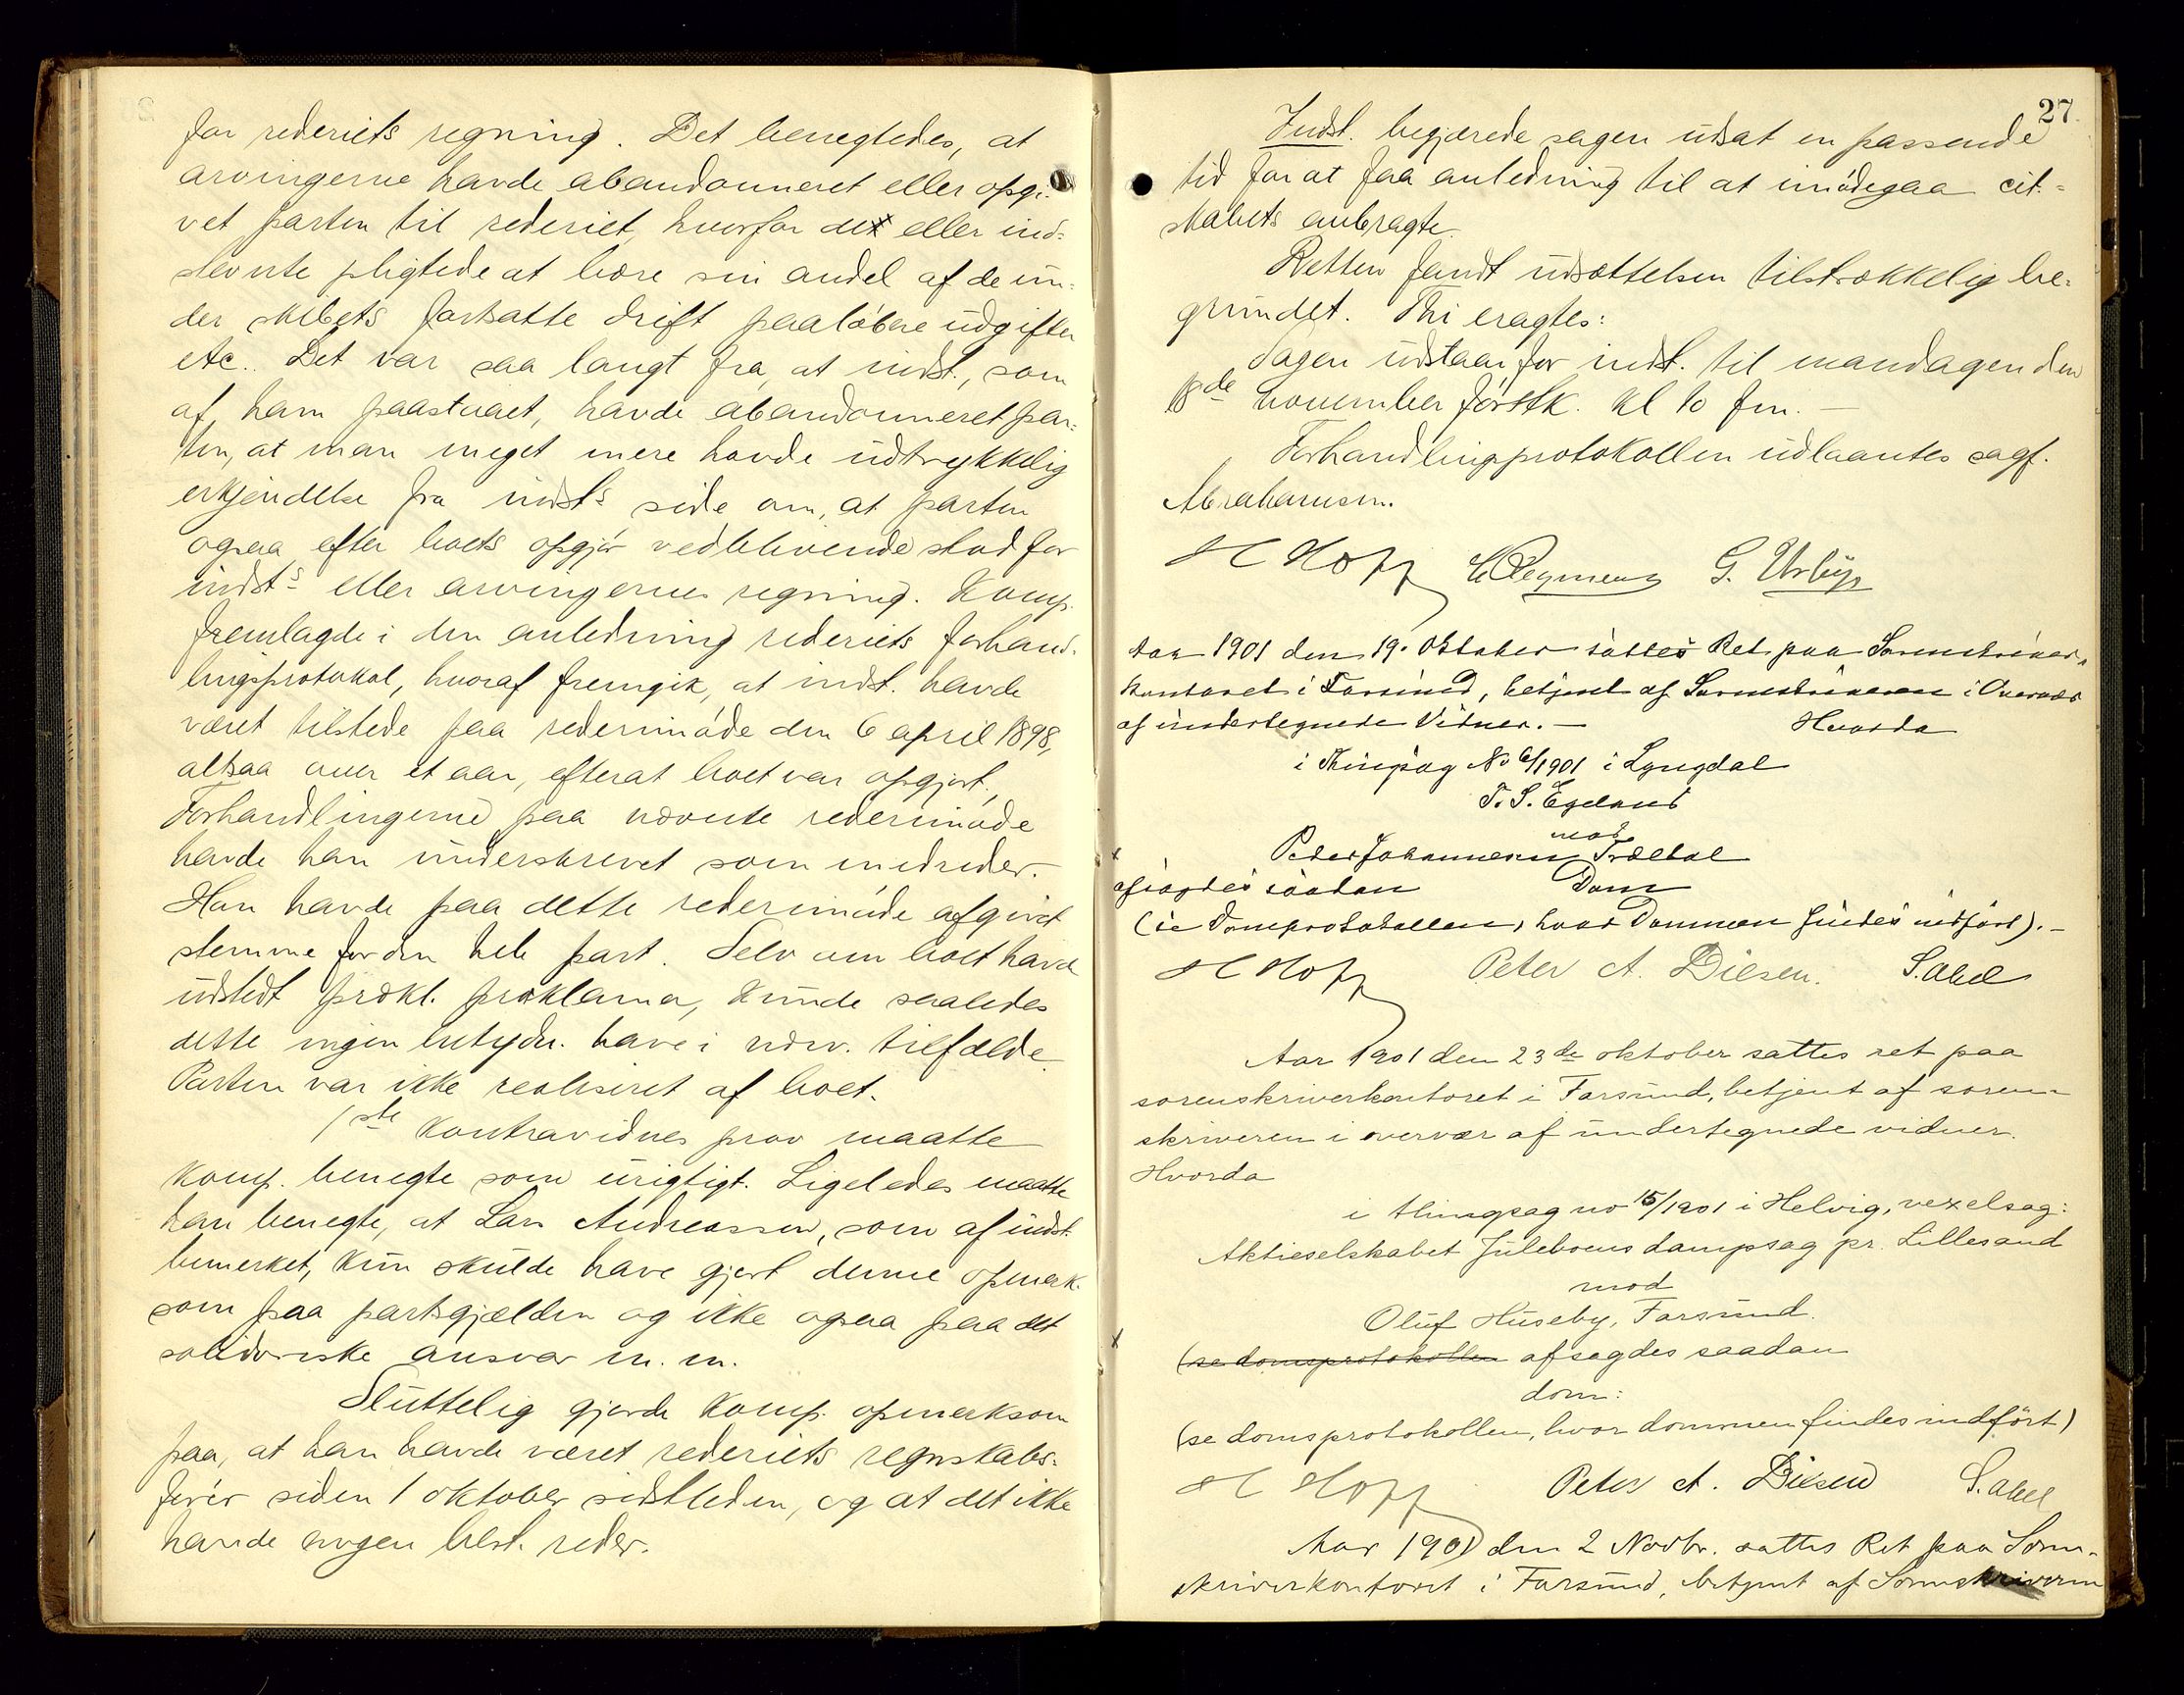 for rederiets regning. Det benegtedes, at
arvingerne havde abandonneret eller opgi-
vet parten til rederiet, hvorfor det eller ind-
stevnte pligtede at bære sin andel af de un-
der skibets fortsatte drift paaløbne udgifter
etc.. Det var saa langt fra, at indst., som
af ham paastaaet, havde abandonneret par-
ten, at man meget mere havde udtrykkelig
erkjendelse fra indsts side om, at parten
ogsaa efter boets opgjør vedblivende stod for
indsts eller arvingernes regning. Komp.
fremlagde i den anledning rederiets forhand-
lingsprotokol, hvoraf fremgik, at indst. havde
været tilstede paa rederimøde den 6 april 1898,
altsaa over et aar, efterat boet var opgjort.
Forhandlingerne paa nævnte rederimøde
havde han underskrevet som medreder.
Han havde paa dette rederimøde afgivet
stemme for den hele part. Selv om boet havde
udstedt prækl. proklama, kunde saaledes
dette ingen betydn. have i nærv. tilfælde.
Parten var ikke realiseret af boet.
1ste kontravidnes prov maatte
komp. benegte som urigtigt. Ligeledes maatte
han benegte, at Lars Andreassen, som af indst.
bemerket, kun skulde have gjort denne opmerk-
som paa partsgjælden og ikke ogsaa paa det
solidariske ansvar m. m.
Sluttelig gjorde komp. opmerksom
paa, at han havde været rederiets regnskabs-
fører siden 1 oktober sidstleden, og at det ikke
havde nogen best. reder.
27.
Indst. begjærede sagen udsat en passende
tid for at faa anledning til at imødegaa cit-
skabets anbragte.
Retten fandt udsættelsen tilstrækkelig be-
grundet. Thi eragtes:
Sagen udstaar for indst. til mandagen den
18de november førstk. kl 10 fm. –
Forhandlingsprotokollen udlaantes sagf.
Abrahamsen.
H Hopp G. Urbye
Aar 1901 den 19. Oktober sattes Ret paa Sorenskriver-
kontoret i Farsund, betjent af Sorenskriveren i Overvær
af undertegnede Vidner. – Hvorda
i Thingsag No 6/1901 i Lyngdal
T. S. Egeland
mod
Peder Johannesen Træltal
afsagdes saadan Dom
(se Domsprotokollen, hvor Dommen findes indført). –
H Hopp Peter A. Diesen. S. Abel
Aar 1901 den 23de oktober sattes ret paa
sorenskriverkontoret i Farsund, betjent af soren-
skriveren i overvær af undertegnede vidner.
Hvorda
i thingsag no 15/1901 i Helvig, vexelsag:
Aktieselskabet Juleboens dampsag pr. Lillesand
mod
Oluf Huseby, Farsund.
(se domsprotokollen afsagdes saadan
dom:
(se domsprotokollen, hvor dommen findes indført)
H Hopp Peter A. Diesen S. Abel
Aar 1901 den 2 Novbr. sattes Ret paa Soren-
skriverkontoret i Farsund, betjent af Sorenskriveren